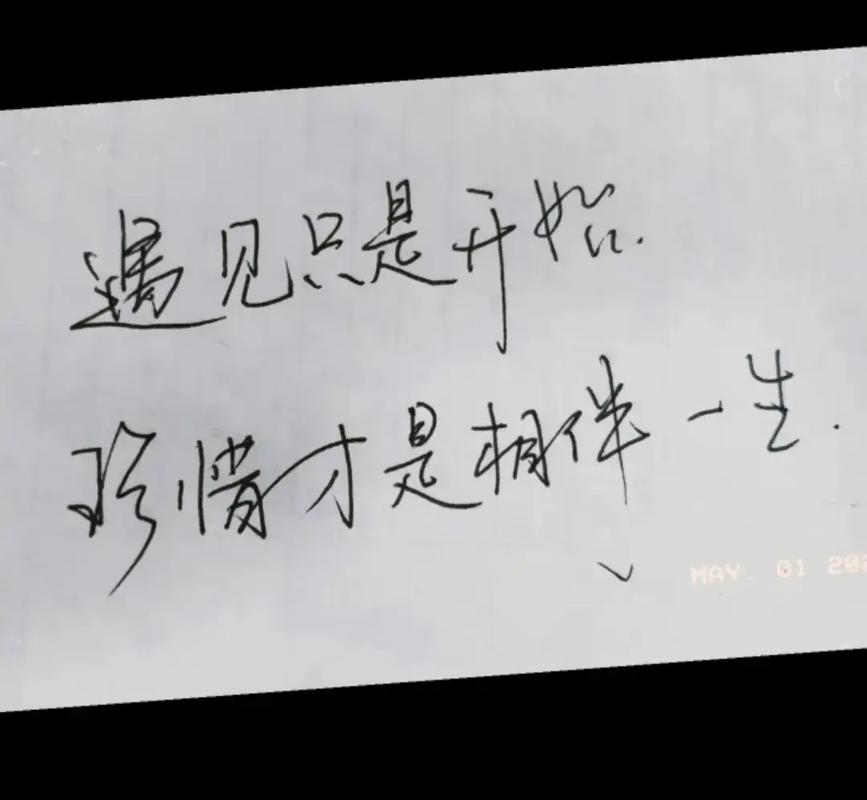 遇见只是开始.
珍惜才是相伴一生.
MAY. 01 202